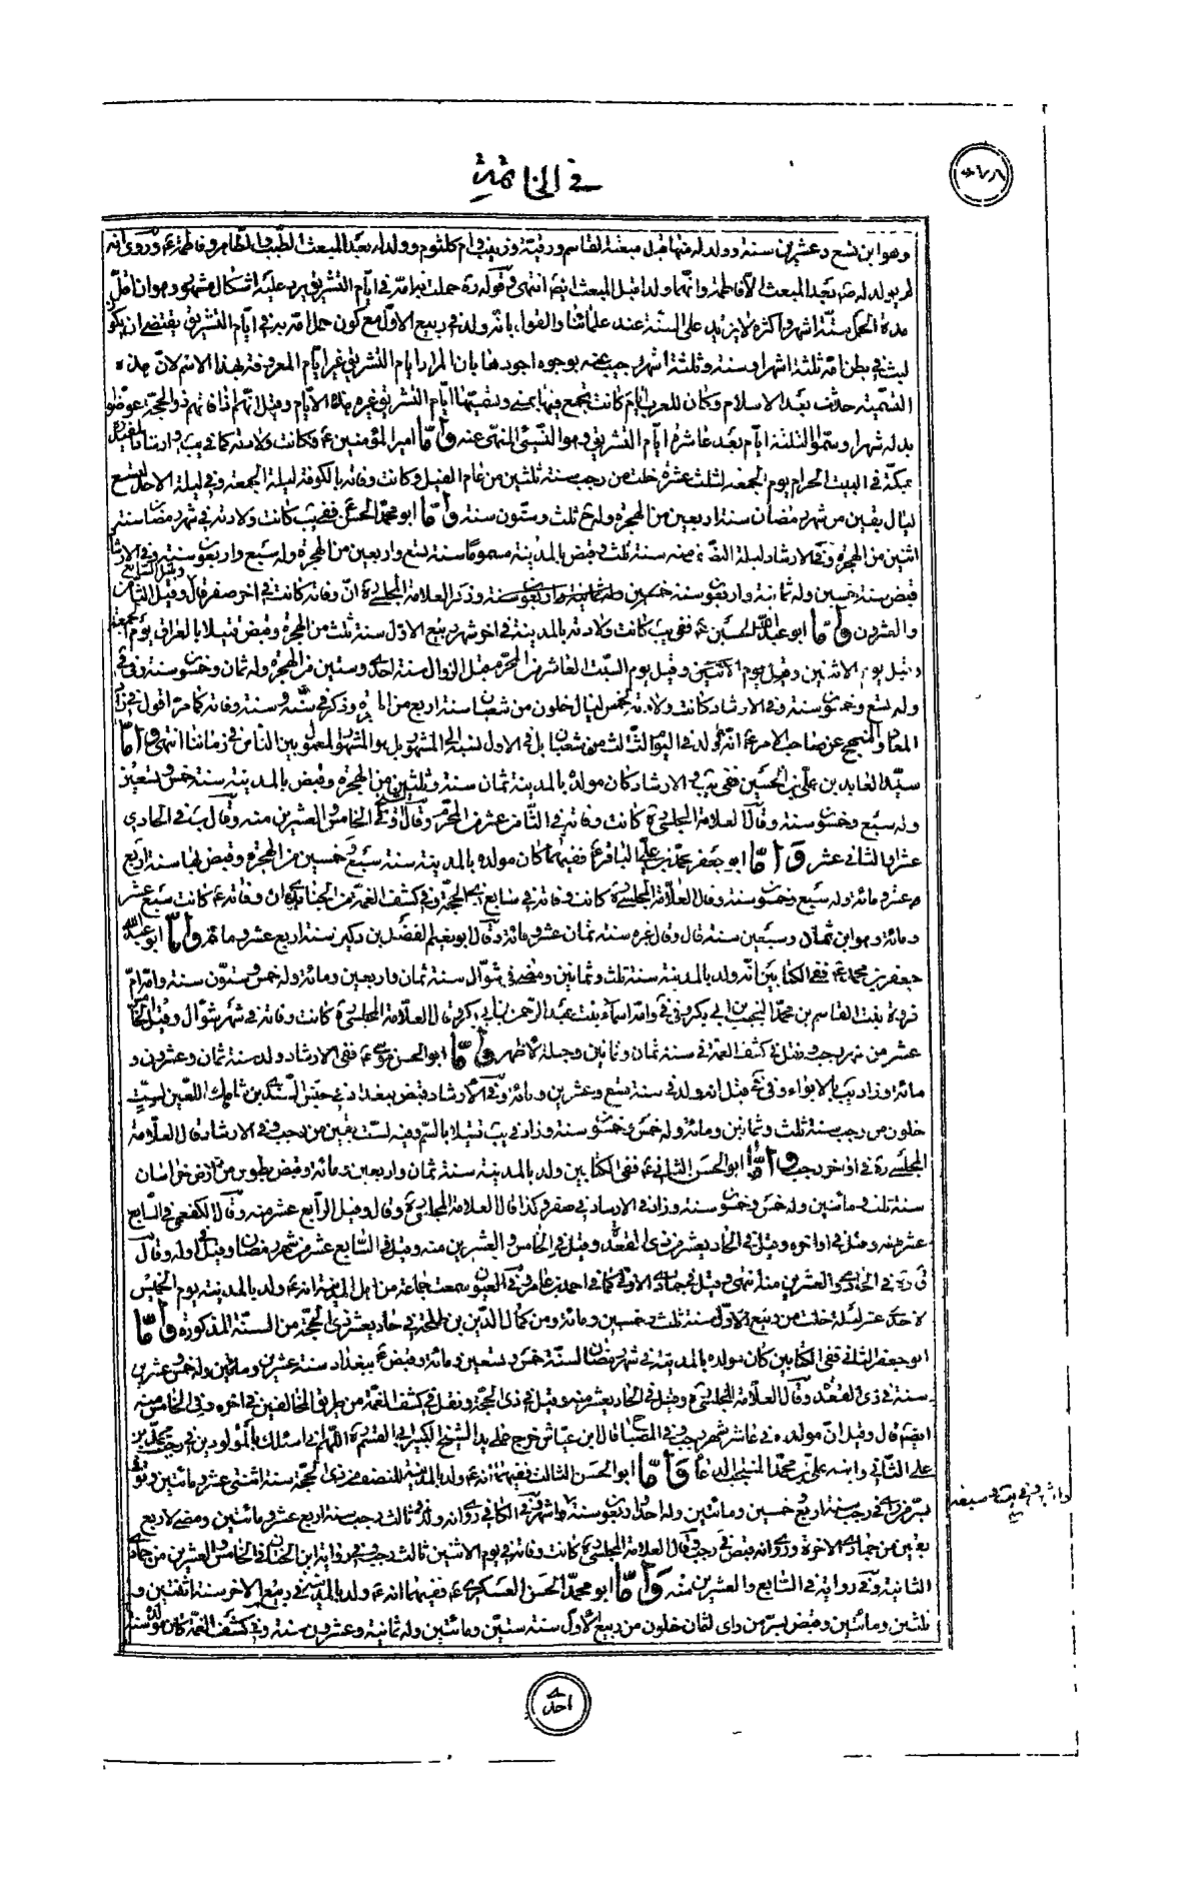 في الخاتمة
وهو ابن بضع وعشرين سنة وولد له منها قبل مبعثه القاسم ورقية وزينب وام كلثوم وولد له بعد المبعث الطيب والطاهر وفاطمة ع وروى انه
لم يولد له ص بعد المبعث الا فاطمة وانهما ولدا قبل المبعث ايضا انتهى وقوله ره حملت به امه في ايام التشريق يرد عليه اشكال مشهور وهو ان اقل
مدة الحمل ستة اشهر واكثره لا يزيد على السنة عند علمائنا والقول بانه ولد في ربيع الاول مع كون حمل امه به في ايام التشريق يقتضي ان يكون
لبث في بطن امه ثلثة اشهر او سنة وثلثة اشهر اجيب عنه بوجوه اجودها بان المراد ايام التشريق غير ايام المعروفة بهذا الاسم لان هذه
التسمية حدثت بعد الاسلام وكان للعرب ايام كانت تجتمع فيها بمنى وتسميها ايام التشريق غير هذه الايام وقيل انهم اذا فاتهم ذو الحجة عوضوا
بدله شهرا وسموا الثلثة ايام بعد عاشره ايام التشريق وهو النسيئ المنهى عنه واما امير المؤمنين ع فكانت ولادته كما في يب وارشاد المفيد
بمكة في البيت الحرام يوم الجمعة لثلث عشرة خلت من رجب سنة ثلثين من عام الفيل وكانت وفاته بالكوفة ليلة الجمعة وفي ليلة الاحد لتسع
ليال بقين من شهر رمضان سنة اربعين من الهجرة وله ع ثلث وستون سنة واما ابو محمد الحسن ع ففي يب كانت ولادته في شهر رمضان سنة
اثنين من الهجرة وفي الارشاد ليلة النصف منه سنة ثلث وقبض بالمدينة مسموما سنة تسع واربعين من الهجرة وله سبع واربعون سنة وفي الارشاد
قبض سنة خمسين وله ثمانية واربعون سنة وذكر العلامة المجلسي ره ان وفاته كانت في اخر صفر قال وقيل الثامن
والعشرون واما ابو عبد الله الحسين ع ففي يب كانت ولادته بالمدينة في اخر شهر ربيع الاول سنة ثلث من الهجرة وقبض قتيلا بالعراق يوم الجمعة
وقيل يوم الاثنين وقيل يوم السبت العاشر من المحرم قبل الزوال سنة احدى وستين من الهجرة وله ثمان وخمسون سنة وفي
وله تسع وخمسون سنة وفي الارشاد كانت ولادته لخمس ليال خلون من شعبان سنة اربع من الهجرة وذكر في سنه وسنة وفاته كما مر اقول في
انه ولد في اليوم الثالث من شعبان بل في الاول نسبة الى المشهور بل هو المشهور المعمول بين الناس في زماننا انتهى واما
سيد العابدين علي بن الحسين ففي يب والارشاد كان مولده بالمدينة ثمان سنة وثلثين من الهجرة وقبض بالمدينة سنة خمس وتسعين
وله سبع وخمسون سنة وقال العلامة المجلسي ره كانت وفاته في الثامن عشر من المحرم وقال في الخامس والعشرين منه وقال في الحادي
عشر او الثاني عشر واما ابو جعفر محمد بن علي الباقر ع ففيهما كان مولده بالمدينة سنة سبع وخمسين من الهجرة وقبض بها سنة اربع
عشر ومائة وله سبع وخمسون سنة وقال العلامة المجلسي ره كانت وفاته في سابع ذي الحجة وفي كشف الغمة عن الجنابذي ان وفاته ع كانت سبع عشر
ومائة وهو ابن ثمان وسبعين سنة قال وقال غيره سنة ثمان عشر ومائة وقال ابو نعيم الفضل بن دكين سنة اربع عشر ومائة واما ابو عبد الله
جعفر بن محمد ع ففي الكتابين انه ولد بالمدينة سنة ثلث وثمانين ومضى في شوال سنة ثمان واربعين ومائة وله خمس وستون سنة وامه ام
فروة بنت القاسم بن محمد النجيب بن ابي بكر وفي وامها اسماء بنت عبد الرحمن بن ابي بكر وقال العلامة المجلسي ره كانت وفاته في شهر شوال وقيل
عشر من شهر رجب ونقل في كشف الغمة سنة ثمان وثمانين وجعله الاظهر واما ابو الحسن موسى ع ففي الارشاد ولد سنة ثمان وعشرين و
مائة وزاد يب بالابواء وفي قيل انه ولد في سنة تسع وعشرين ومائة وفي الارشاد قبض ببغداد في حبس السندي بن شاهك اللعين لست
خلون من رجب سنة ثلث وثمانين ومائة وله خمس وخمسون سنة وزاد في يب قتيلا بالسم وفيه لست بقين من رجب وفي الارشاد قال العلامة
المجلسي ره في اواخر رجب واما ابو الحسن الثاني ع ففي الكتابين ولد بالمدينة سنة ثمان واربعين ومائة وقبض بطوس من ارض خراسان
سنة ثلث ومائتين وله خمس وخمسون سنة وزاد في الارشاد في صفر وكذا قال العلامة المجلسي ره وقال وقيل الرابع عشر منه وقال الكفعمي في السابع
عشر منه وقيل في اواخره وقيل في الحادي عشر من ذي القعدة وقيل في الخامس والعشرين منه وقيل في السابع عشر من شهر رمضان وقيل في اوله وقال
في الحادي والعشرين منه انتهى وقيل في جمادى الاولى كما في احمد بن عامر وفي العيون سمعت جماعة من اهل المدينة انه ع ولد بالمدينة يوم الخميس
لاحدى عشر ليلة خلت من ربيع الاول سنة ثلث وخمسين ومائة ومن كمال الدين بن طلحة في حادي عشر ذي الحجة من السنة المذكورة واما
ابو جعفر الثاني ففي الكتابين كان مولده بالمدينة في شهر رمضان السنة خمس وتسعين ومائة وقبض ع ببغداد سنة عشرين ومائتين وله خمس وعشرين
سنة في ذي القعدة وقال العلامة المجلسي ره وقيل في الحادي عشر منه وقيل في ذي الحجة ونقل في كشف الغمة من طريق المخالفين في اخره وفي الخامس منه
ايضا قال وقيل ان مولده في عاشر شهر رجب وفي المصباح قال ابن عياش خرج على يد الشيخ الكبير ابي القسم ره اللهم اني اسئلك بالمولودين في رجب محمد بن
علي الثاني وابنه علي بن محمد المنتجب الدعا واما ابو الحسن الثالث ففيهما انه ع ولد بالمدينة للنصف من ذي الحجة سنة اثنتى عشر ومائتين وتوفي
بسر من رأى في رجب سنة اربع وخمسين ومائتين وله احدى واربعون سنة واشهر وفي الكافي روى انه ولد ثالث رجب سنة اربع عشر ومائتين ومضى لاربع
بقين من جمادى الاخرة وروى انه قبض في رجب وقال العلامة المجلسي ره كانت وفاته في يوم الاثنين ثالث رجب وفي رواية ابن الخشاب في الخامس والعشرين من جمادى
الثانية وفي رواية في السابع والعشرين منه واما ابو محمد الحسن العسكري ع ففيهما انه ع ولد بالمدينة في ربيع الاخر سنة اثنتين و
ثلثين ومائتين وقبض بسر من راى لثمان خلون من ربيع الاول سنة ستين ومائتين وله ثمانية وعشرون سنة وفي كشف الغمة كان مولده سنة
احدى